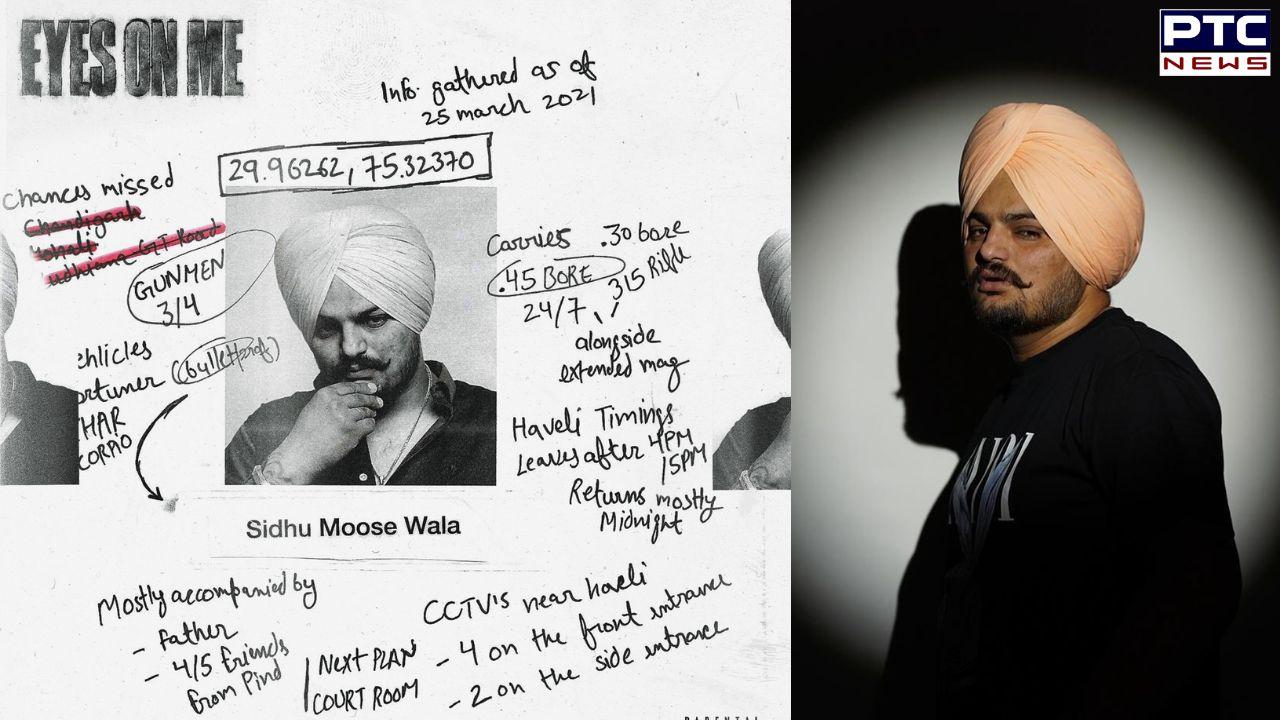 EYES ON ME
Info. gathered as of
25 march 2021
29.96262, 75.32370
Chances missed
Chandigarh
Mohali
udhiana GT Road
GUNMEN
3/4
ehlicles
ortuner (bulletproof)
HAR
CORPIO
Carries .30 bore
.45 BORE 315 Rifle
24/7
alongside
extended mag
Haveli Timings
Leaves after 4PM
/5PM
Returns mostly
Midnight
Sidhu Moose Wala
Mostly accompanied by
- father
- 4/5 friends
from Pind
NEXT PLAN
COURT ROOM
CCTV's near haveli
- 4 on the front entrance
- 2 on the side entrance
PTC
NEWS